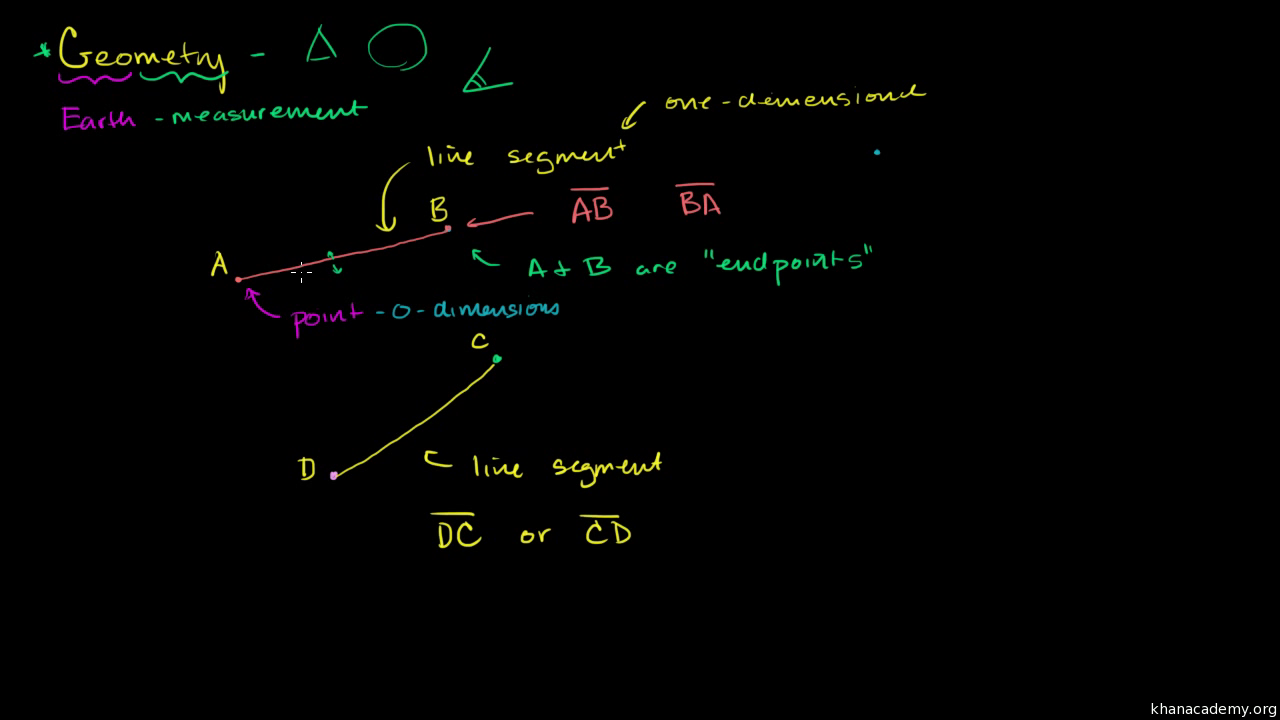 * Geometry -
Earth - measurement
one-dimensional
line segment
B
AB BA
A
A + B are "endpoints"
point - 0 - dimensions
C
D
line segment
DC or CD
khanacademy.org